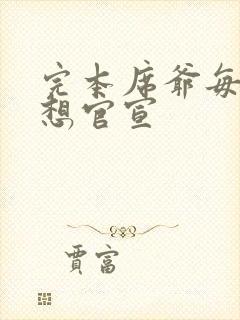 完本席爷每
想官宣
贾富